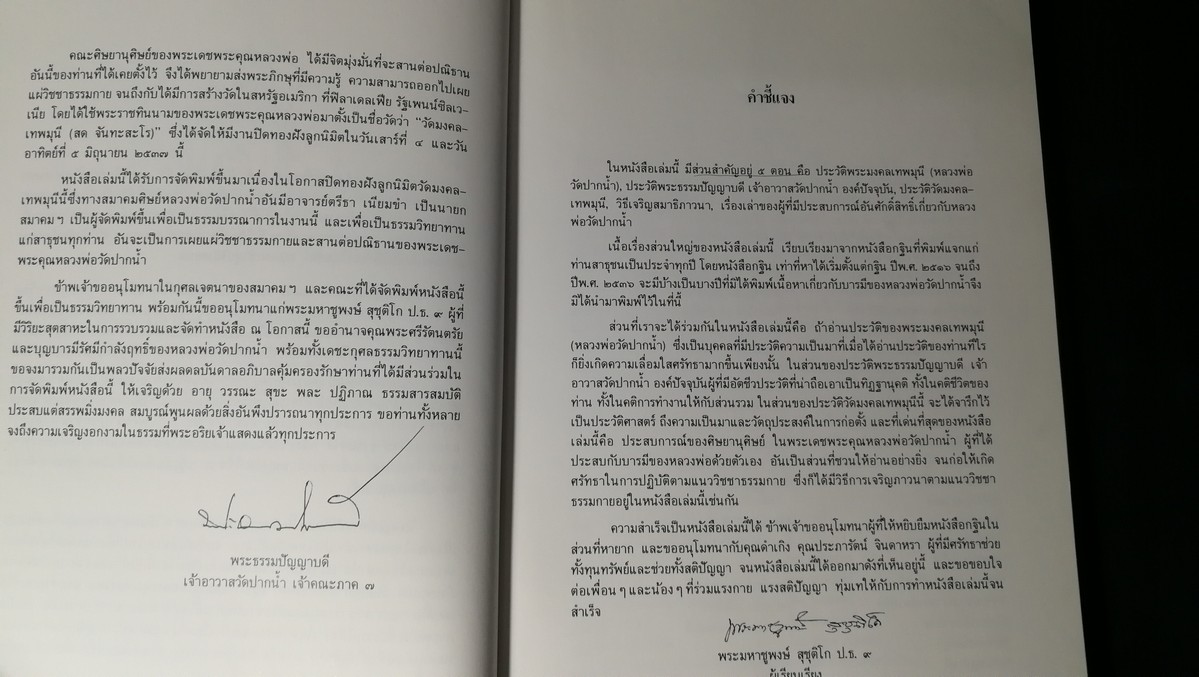 คณะศิษยานุศิษย์ของพระเดชพระคุณหลวงพ่อ ได้มีจิตมุ่งมั่นที่จะสานต่อปณิธาน
อันนี้ของท่านที่ได้เคยตั้งไว้ จึงได้พยายามส่งพระภิกษุที่มีความรู้ ความสามารถออกไปเผย
แผ่วิชชาธรรมกาย จนถึงกับได้มีการสร้างวัดในสหรัฐอเมริกา ที่ฟิลาเดลเฟีย รัฐเพนน์ซิลเว–
เนีย โดยได้ใช้พระราชทินนามของพระเดชพระคุณหลวงพ่อมาตั้งเป็นชื่อวัดว่า "วัดมงคล–
เทพมุนี (สด จันทะสะโร)" ซึ่งได้จัดให้มีงานปิดทองฝังลูกนิมิตในวันเสาร์ที่ ๔ และวัน
อาทิตย์ที่ ๕ มิถุนายน ๒๕๓๗ นี้
หนังสือเล่มนี้ได้รับการจัดพิมพ์ขึ้นมาเนื่องในโอกาสปิดทองฝังลูกนิมิตวัดมงคล–
เทพมุนีนี้ซึ่งทางสมาคมศิษย์หลวงพ่อวัดปากน้ำอันมีอาจารย์ตรีธา เนียมขำ เป็นนายก
สมาคมฯ เป็นผู้จัดพิมพ์ขึ้นเพื่อเป็นธรรมบรรณาการในงานนี้ และเพื่อเป็นธรรมวิทยาทาน
แก่สาธุชนทุกท่าน อันจะเป็นการเผยแผ่วิชชาธรรมกายและสานต่อปณิธานของพระเดช–
พระคุณหลวงพ่อวัดปากน้ำ
ข้าพเจ้าขออนุโมทนาในกุศลเจตนาของสมาคมฯ และคณะที่ได้จัดพิมพ์หนังสือนี้
ขึ้นเพื่อเป็นธรรมวิทยาทาน พร้อมกันนี้ขออนุโมทนาแก่พระมหาชูพงษ์ สุชุติโก ป.ธ. ๙ ผู้ที่
มีวิริยะอุตสาหะในการรวบรวมและจัดทำหนังสือ ณ โอกาสนี้ ขออำนาจคุณพระศรีรัตนตรัย
และบุญบารมีรัศมีกำลังฤทธิ์ของหลวงพ่อวัดปากน้ำ พร้อมทั้งเดชะกุศลธรรมวิทยาทานนี้
ขอจงมารวมกันเป็นพลวปัจจัยส่งผลดลบันดาลอภิบาลคุ้มครองรักษาท่านที่ได้มีส่วนร่วมใน
การจัดพิมพ์หนังสือนี้ ให้เจริญด้วย อายุ วรรณะ สุขะ พละ ปฏิภาณ ธรรมสารสมบัติ
ประสบแต่สรรพมิ่งมงคล สมบูรณ์พูนผลด้วยสิ่งอันพึงปรารถนาทุกประการ ขอท่านทั้งหลาย
จงถึงความเจริญงอกงามในธรรมที่พระอริยเจ้าแสดงแล้วทุกประการ
พระธรรมปัญญาบดี
เจ้าอาวาสวัดปากน้ำ เจ้าคณะภาค ๗
คำชี้แจง
ในหนังสือเล่มนี้ มีส่วนสำคัญอยู่ ๕ ตอน คือ ประวัติพระมงคลเทพมุนี (หลวงพ่อ
วัดปากน้ำ), ประวัติพระธรรมปัญญาบดี เจ้าอาวาสวัดปากน้ำ องค์ปัจจุบัน, ประวัติวัดมงคล–
เทพมุนี, วิธีเจริญสมาธิภาวนา, เรื่องเล่าของผู้ที่มีประสบการณ์อันศักดิ์สิทธิ์เกี่ยวกับหลวง
พ่อวัดปากน้ำ
เนื้อเรื่องส่วนใหญ่ของหนังสือเล่มนี้ เรียบเรียงมาจากหนังสือกฐินที่พิมพ์แจกแก่
ท่านสาธุชนเป็นประจำทุกปี โดยหนังสือกฐิน เท่าที่หาได้เริ่มตั้งแต่กฐิน ปีพ.ศ. ๒๕๑๖ จนถึง
ปีพ.ศ. ๒๕๓๖ จะมีบ้างเป็นบางปีที่มิได้พิมพ์เนื้อหาเกี่ยวกับบารมีของหลวงพ่อวัดปากน้ำจึง
มิได้นำมาพิมพ์ไว้ในที่นี้
ส่วนที่เราจะได้ร่วมกันในหนังสือเล่มนี้คือ ถ้าอ่านประวัติของพระมงคลเทพมุนี
(หลวงพ่อวัดปากน้ำ) ซึ่งเป็นบุคคลที่มีประวัติความเป็นมาที่เมื่อได้อ่านประวัติของท่านทีไร
ก็ยิ่งเกิดความเลื่อมใสศรัทธามากขึ้นเพียงนั้น ในส่วนของประวัติพระธรรมปัญญาบดี เจ้า
อาวาสวัดปากน้ำ องค์ปัจจุบันผู้ที่มีอัตชีวประวัติที่น่าถือเอาเป็นทิฏฐานุคติ ทั้งในคติชีวิตของ
ท่าน ทั้งในคติการทำงานให้กับส่วนรวม ในส่วนของประวัติวัดมงคลเทพมุนีนี้ จะได้จารึกไว้
เป็นประวัติศาสตร์ ถึงความเป็นมาและวัตถุประสงค์ในการก่อตั้ง และที่เด่นที่สุดของหนังสือ
เล่มนี้คือ ประสบการณ์ของศิษยานุศิษย์ ในพระเดชพระคุณหลวงพ่อวัดปากน้ำ ผู้ที่ได้
ประสบกับบารมีของหลวงพ่อด้วยตัวเอง อันเป็นส่วนที่ชวนให้อ่านอย่างยิ่ง จนก่อให้เกิด
ศรัทธาในการปฏิบัติตามแนววิชชาธรรมกาย ซึ่งก็ได้มีวิธีการเจริญภาวนาตามแนววิชชา
ธรรมกายอยู่ในหนังสือเล่มนี้เช่นกัน
ความสำเร็จเป็นหนังสือเล่มนี้ได้ ข้าพเจ้าขออนุโมทนาผู้ที่ให้หยิบยืมหนังสือกฐินใน
ส่วนที่หายาก และขออนุโมทนากับคุณดำเกิง คุณประภารัตน์ จินดาหรา ผู้ที่มีศรัทธาช่วย
ทั้งทุนทรัพย์และช่วยทั้งสติปัญญา จนหนังสือเล่มนี้ได้ออกมาดังที่เห็นอยู่นี้ และขอขอบใจ
ต่อเพื่อนๆ และน้องๆ ที่ร่วมแรงกาย แรงสติปัญญา ทุ่มเทให้กับการทำหนังสือเล่มนี้จน
สำเร็จ
พระมหาชูพงษ์ สุชุติโก ป.ธ. ๙
ผู้เรียบเรียง